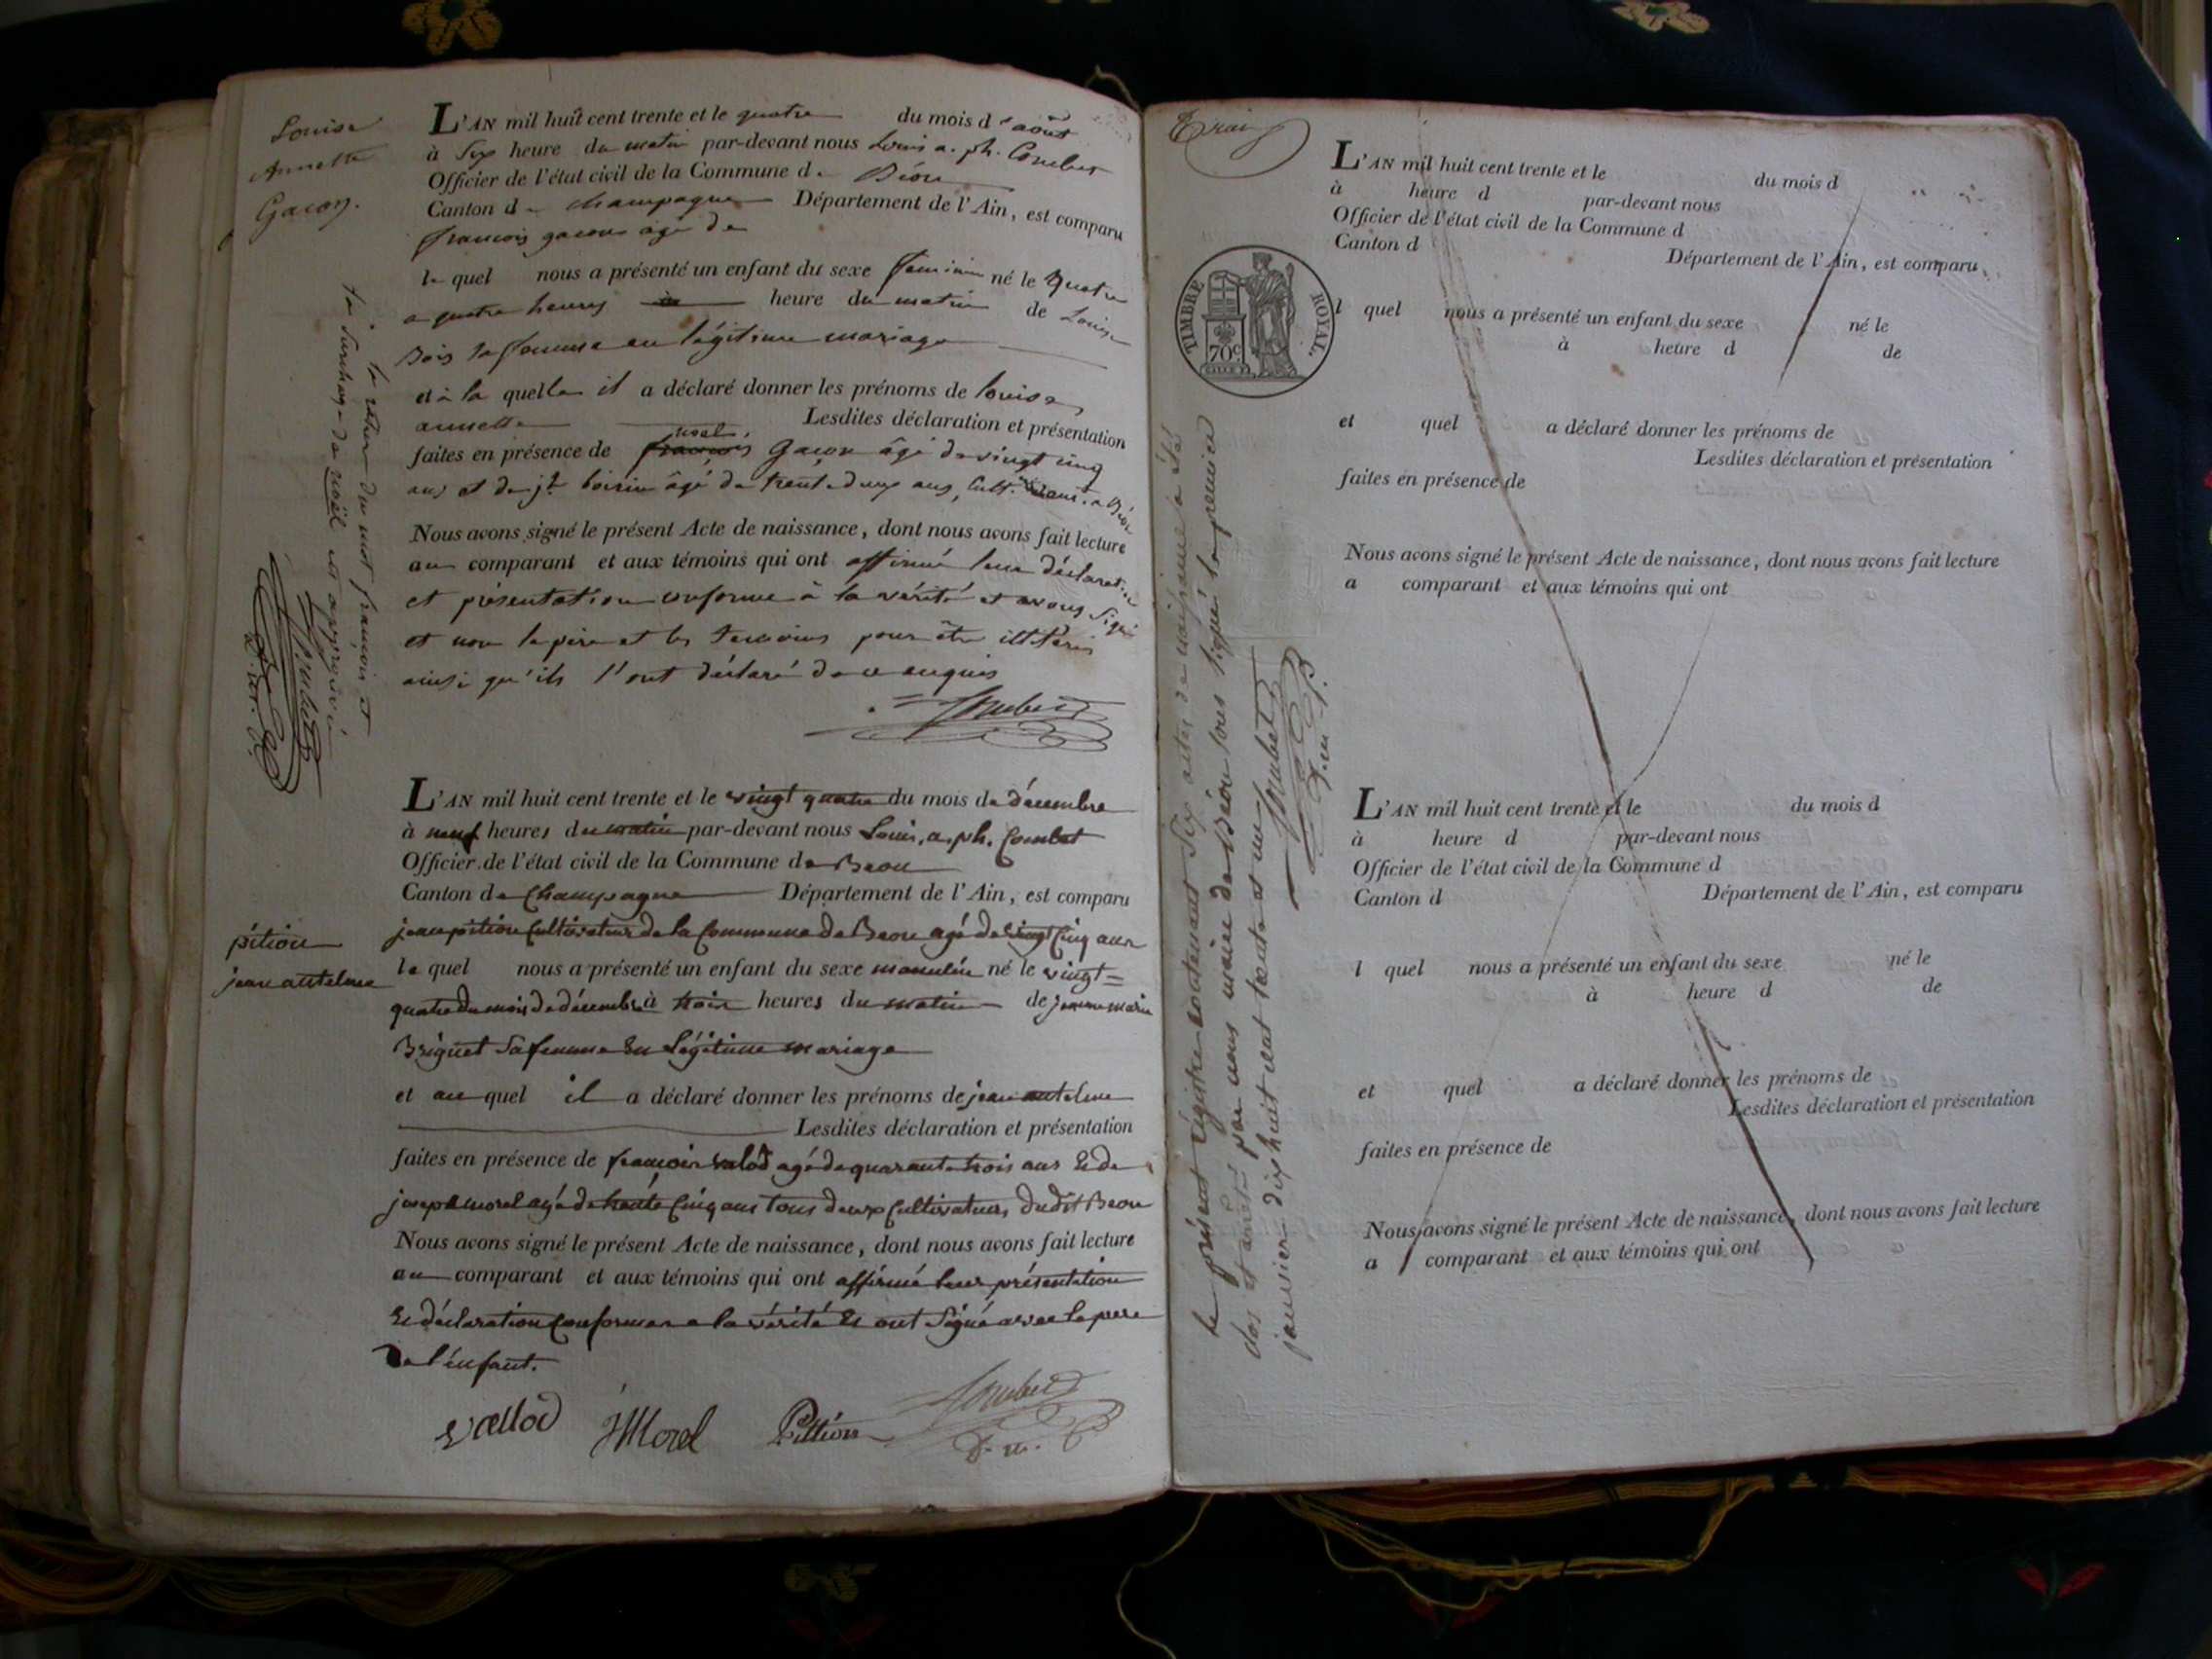 Louise
Annette
Gacon.
L'AN mil huit cent trente et le quatre du mois d'août
à six heure du matin par-devant nous Louis a. ph. Combet
Officier de l'état civil de la Commune de Béon
Canton de Champagne Département de l'Ain, est comparu
françois gacon âgé de
le quel nous a présenté un enfant du sexe feminin né le quatre
a quatre heures heure du matin de Louise
Bois sa femme en légitime mariage
et à la quelle il a déclaré donner les prénoms de louise
annette Lesdites déclaration et présentation
faites en présence de françois noel Gacon âgé de vingt cinq
ans et de jh. boirin âgé de trente deux ans, cult. a Béon
Nous avons signé le présent Acte de naissance, dont nous avons fait lecture
au comparant et aux témoins qui ont affirmé leur déclaration
et présentation conforme à la vérité et avons signé
et non le père et les temoins pour être illiterés
ainsi qu'ils l'ont déclaré de ce enquis
Combet
la rature du mot françois et
la surcharge de noël est approuvée
Combet
L'AN mil huit cent trente et le vingt quatre du mois de décembre
à neuf heures du matin par-devant nous Louis, a, ph. Combet
Officier de l'état civil de la Commune de Beon
Canton de Champagne Département de l'Ain, est comparu
pition
jean antelme
jean pition Cultivateur de la Commune de Beon agé de vingt Cinq ans
le quel nous a présenté un enfant du sexe masculin né le vingt=
quatre du mois de décembre à trois heures du matin de jeanne marie
Briguet Sa femme En Légitime mariage
et au quel il a déclaré donner les prénoms de jean antelme
Lesdites déclaration et présentation
faites en présence de françois valod agé de quarante trois ans Et de
joseph morel agé de trente Cinq ans tous deux Cultivateurs dudit Beon
Nous avons signé le présent Acte de naissance, dont nous avons fait lecture
au comparant et aux témoins qui ont affirmé leur présentation
Et déclaration Conformes a la vérité Et ont Signé avec le pere
De l'enfant.
vallod JMorel Pittion Combet
D. m.
TIMBRE ROYAL.
70c
le présent régistre contenant Six actes de naissance a été
clos et arrêté par nous maire de Béon sous signé le premier
janvier dix huit cent trente et un
Combet
D. m.
L'AN mil huit cent trente et le du mois d
à heure d par-devant nous
Officier de l'état civil de la Commune d
Canton d Département de l'Ain, est comparu
l quel nous a présenté un enfant du sexe né le
à heure d de
et quel a déclaré donner les prénoms de
Lesdites déclaration et présentation
faites en présence de
Nous avons signé le présent Acte de naissance, dont nous avons fait lecture
a comparant et aux témoins qui ont
L'AN mil huit cent trente et le du mois d
à heure d par-devant nous
Officier de l'état civil de la Commune d
Canton d Département de l'Ain, est comparu
l quel nous a présenté un enfant du sexe né le
à heure d de
et quel a déclaré donner les prénoms de
Lesdites déclaration et présentation
faites en présence de
Nous avons signé le présent Acte de naissance, dont nous avons fait lecture
a comparant et aux témoins qui ont